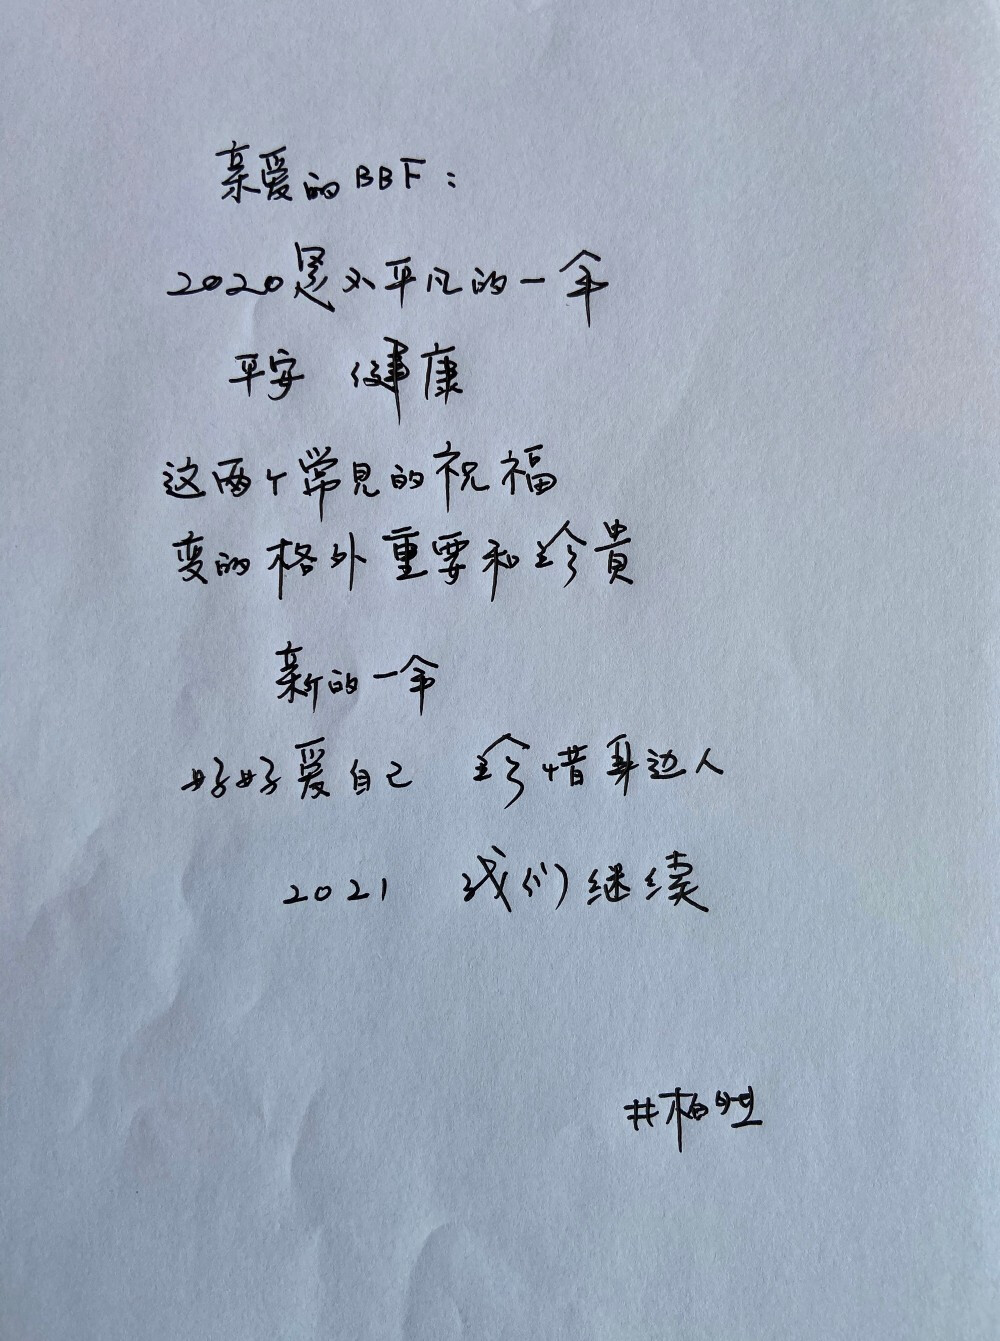 亲爱的BBF：
2020是不平凡的一年
平安 健康
这两个常见的祝福
变的格外重要和珍貴
新的一年
好好爱自己 珍惜身边人
2021 我们继续
#柏